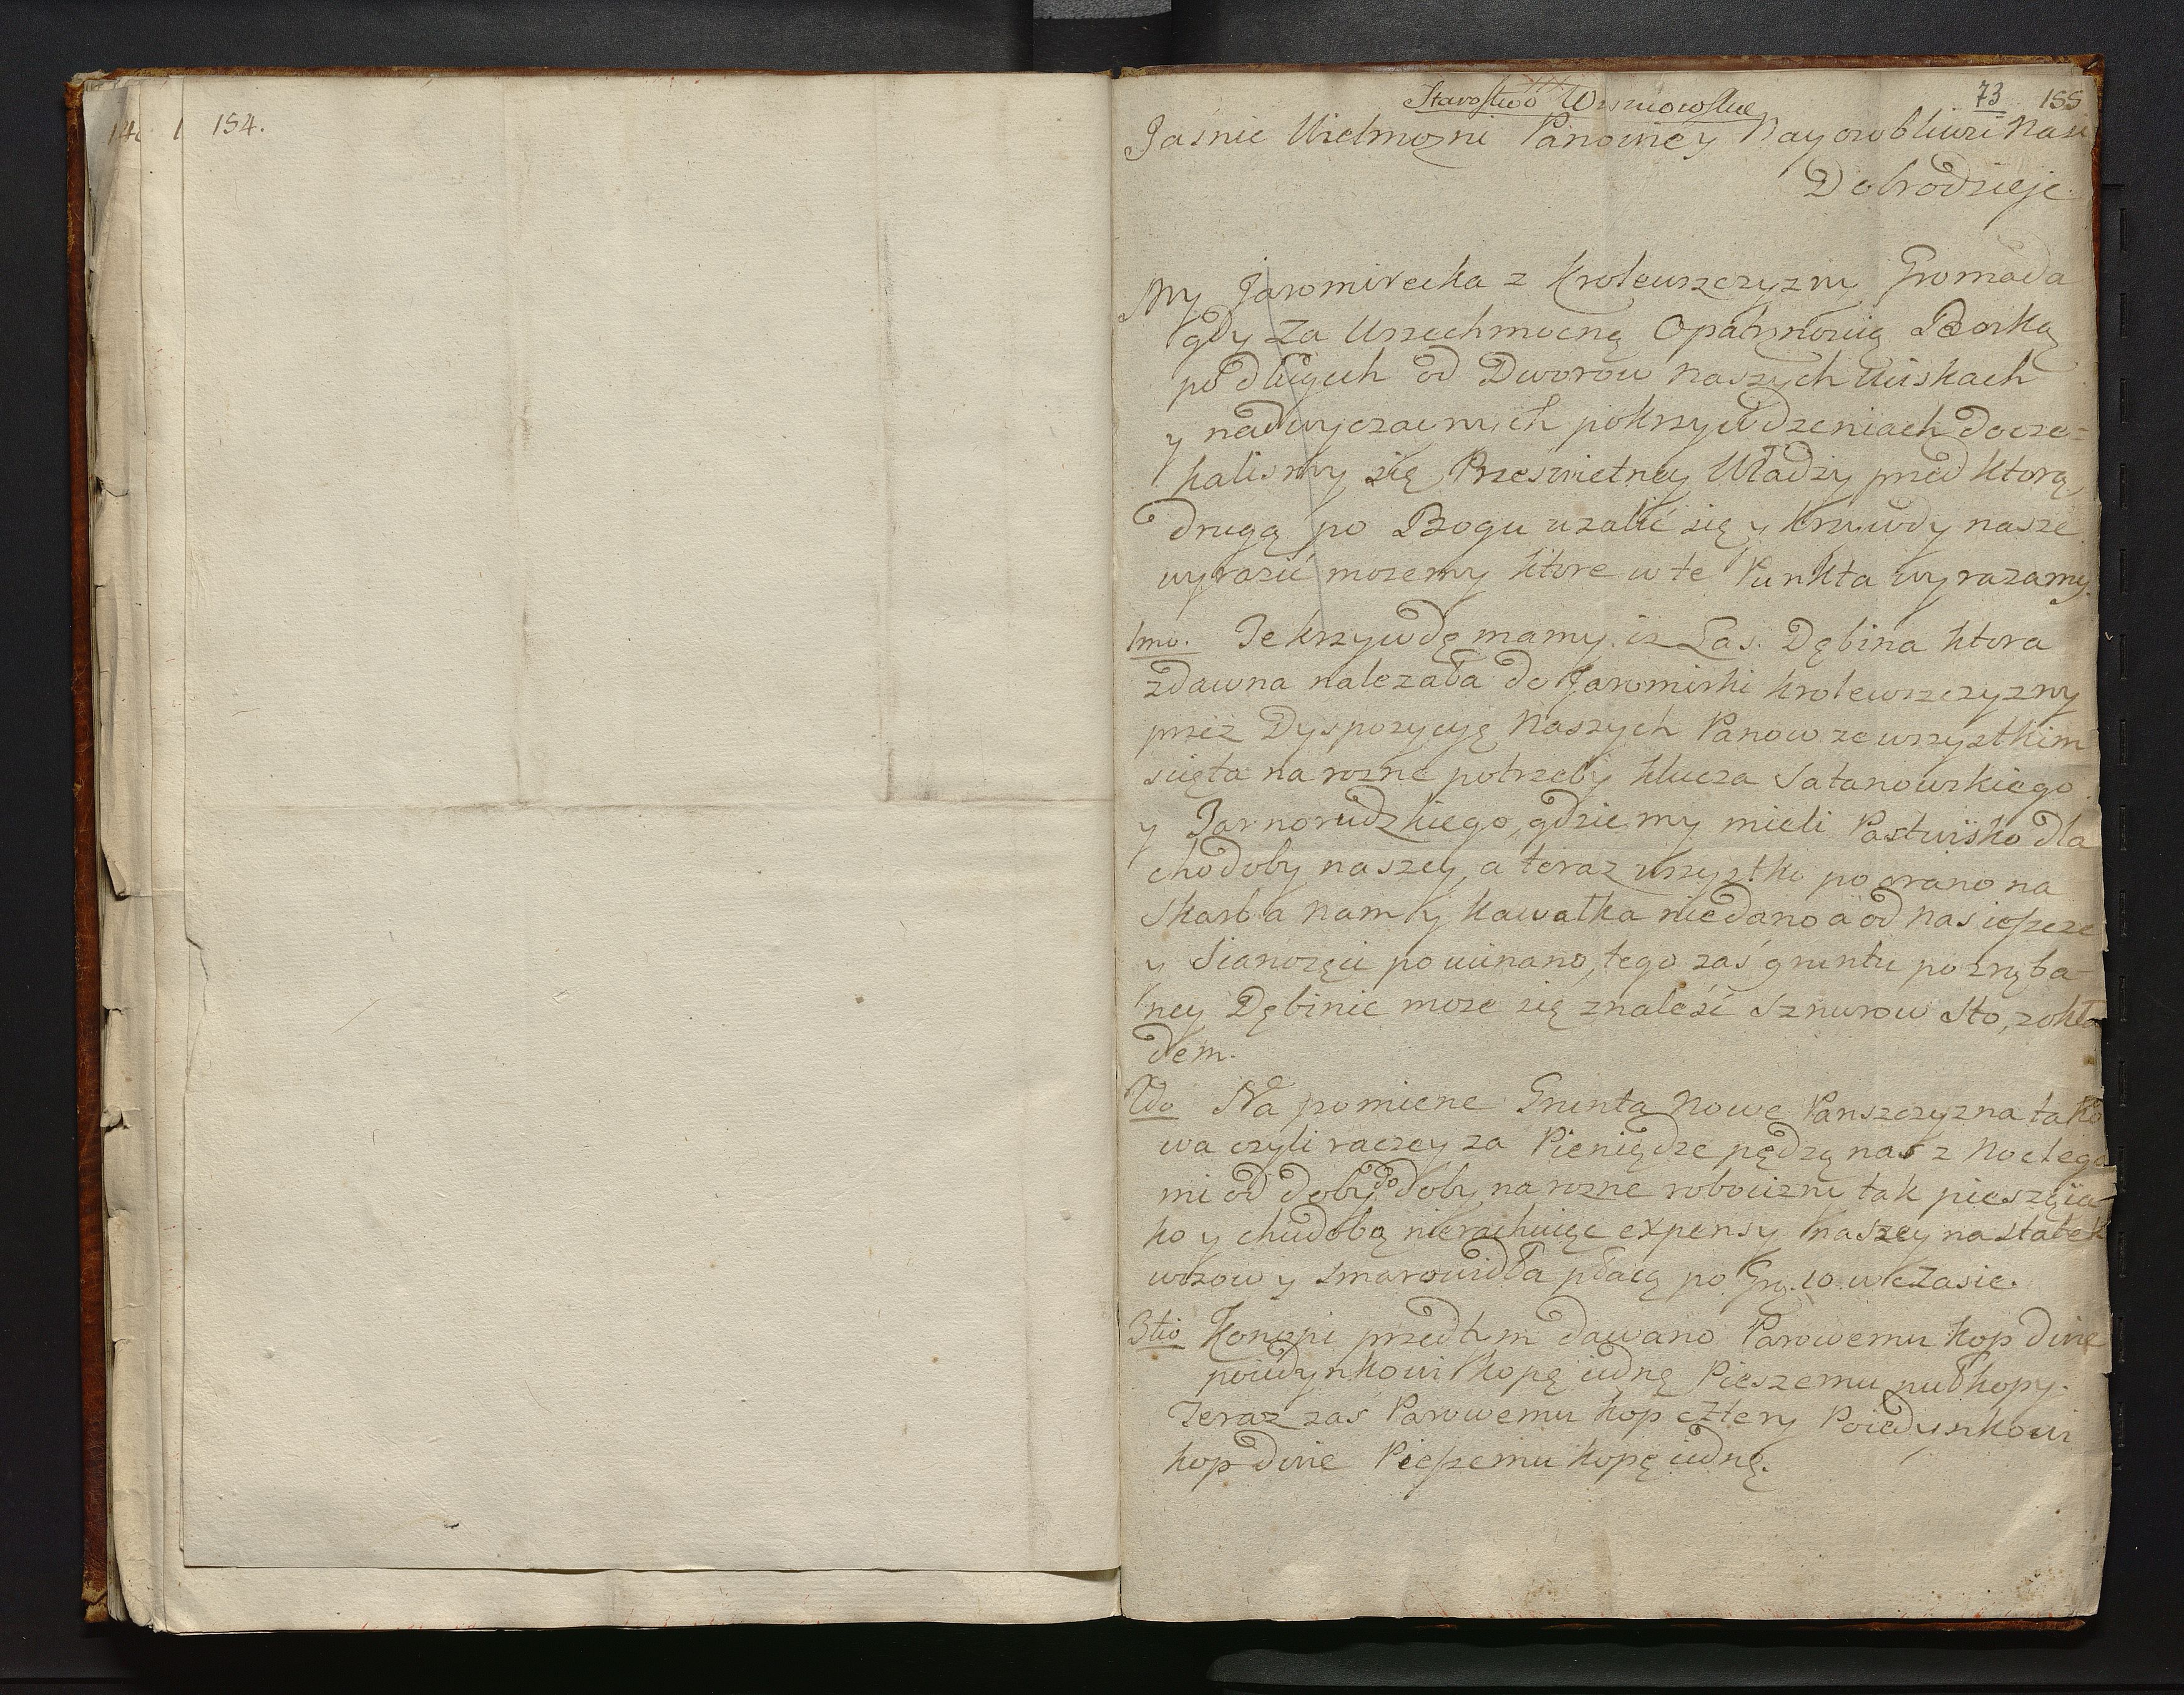 154.
73 155
Starostwo
Jasnie Wielmozni Panowie y Nayosobliwsi Nasi
Dobrodzieje
My Jaromirecka z Krolewszczyzny Gromada
gdy za Wszechmocną Opatrznoscią Boską
po długich od Dworow naszych uciskach
y nadwyczaynych pokrzywdzeniach docze=
kalismy się Przeswietney Władzy przed ktorą
drugą po Bogu uzalić się y krzywdy nasze
wyrazić mozemy ktore w te Punkta wyrazamy.
1mo. Te krzywdę mamy iz Las Dębina ktora
zdawna nalezała do Jaromirki krolewszczyzny
przez Dyspozycyą Naszych Panow ze wszystkim
scięta na rozne potrzeby klucza Satanowskiego
y Tarnorudzkiego, gdzie my mieli Pastwisko dla
chodoby naszey, a teraz wszystko poorano na
Skarb a nam y kawałka niedano a od nas ieszcze
y Sianozęci poucinano, tego zaś gruntu po zrąba-
ney Dębinie moze się znaleść Sznurow Sto, zokła
dem.
2do Na pomiene Grunta Nowe Panszczyzna tako
wa czyli raczey za Pieniądze pędzą nas z noclega
mi od doby do doby na rozne robocizny tak pieszęia-
ko y chudobą nierachuięc expensy naszey na statek
wozow y smarowidła płacą po Gr. 10 w czasie.
3tio Konopi przedtym dawano Parowemu kop dwie
poiedynkowi kopę iednę Pieszemu puł kopy.
Teraz zas Parowemu kop cztery Poiedynkowi
kop dwie Pieszemu kopę iednę.